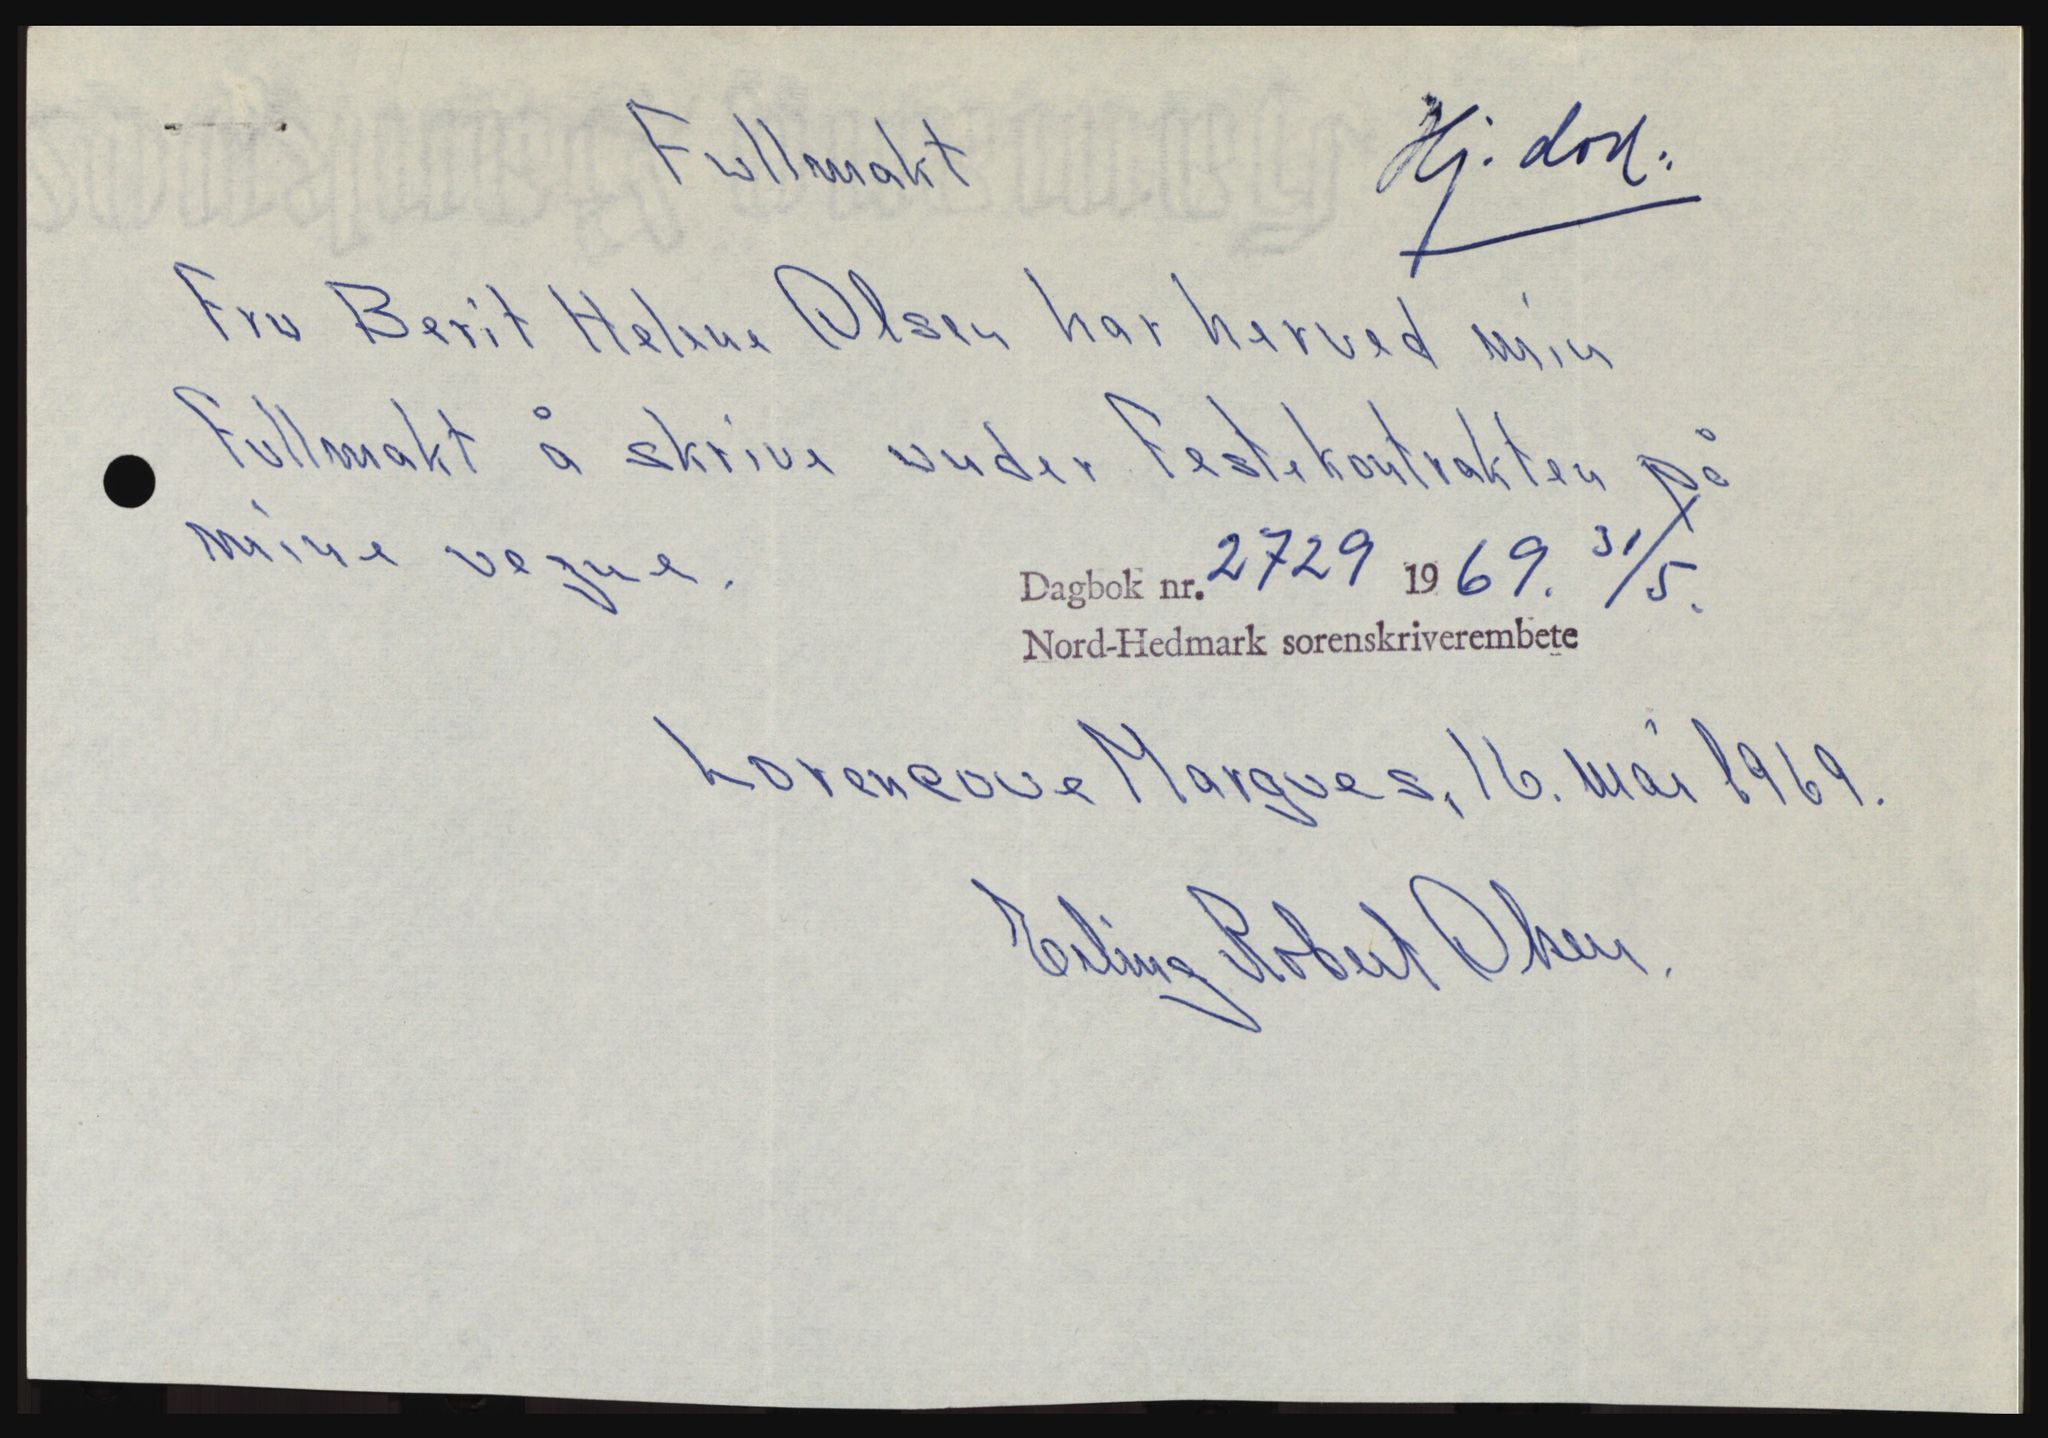 Fullmakt
Hj. dok.
Fru Berit Helene Olsen har herved min
Fullmakt å skrive under Festekontrakten på
mine vegne.
Dagbok nr. 2729 1969. 31/5.
Nord-Hedmark sorenskriverembete
Lorencoue Margues, 16. mai 1969.
Erling Robert Olsen.